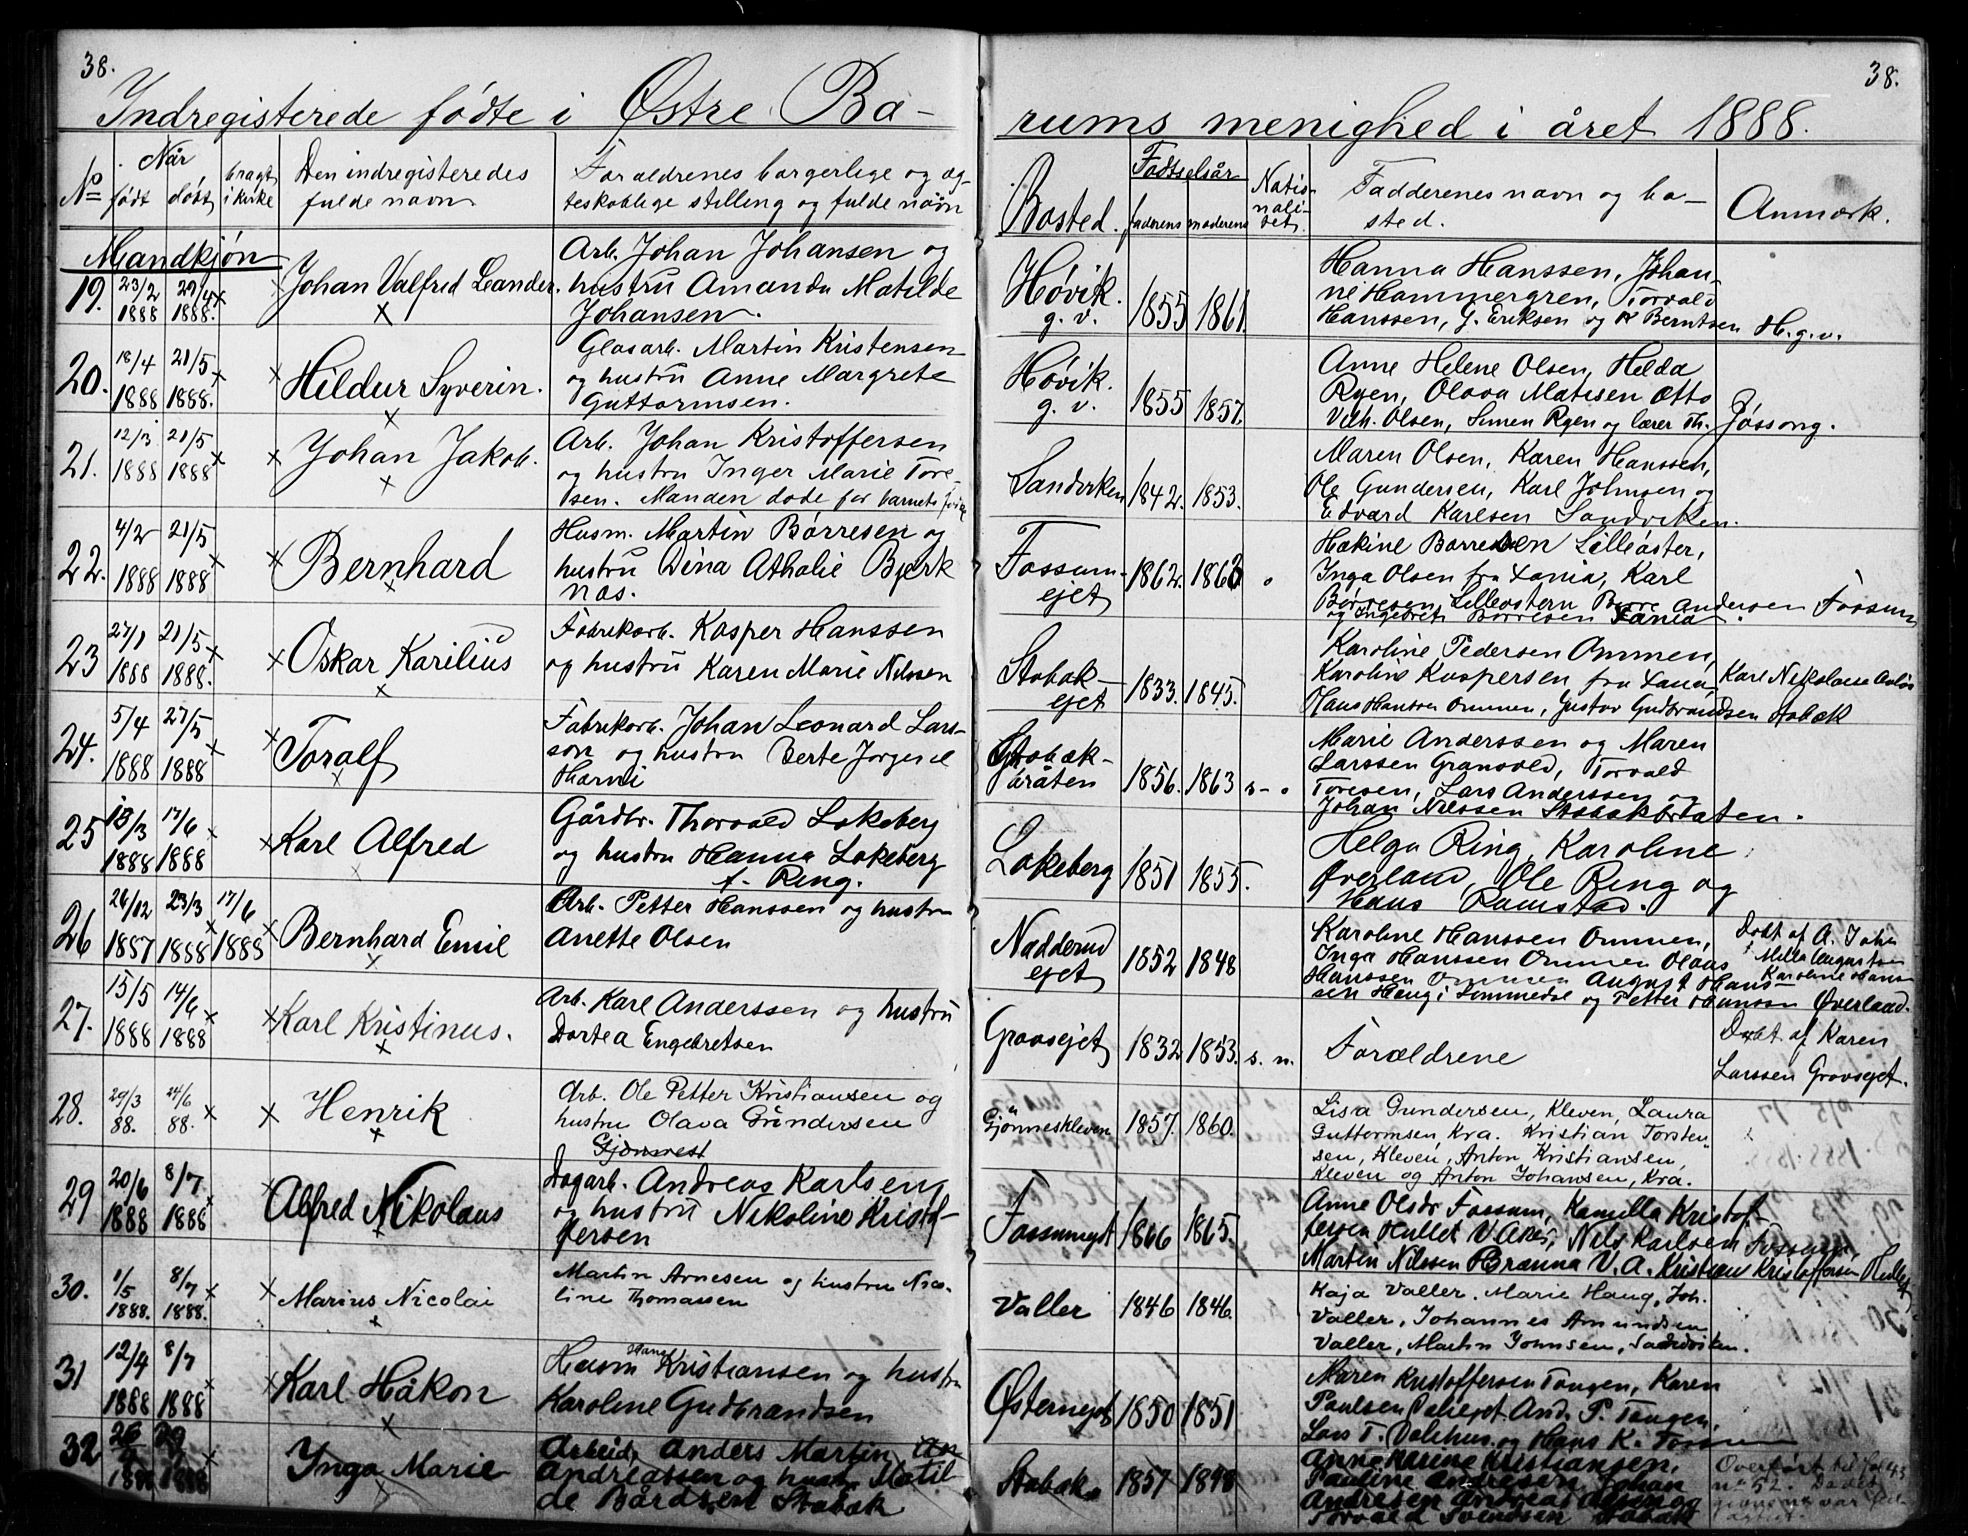 38.
Indregisterede fødte i Østre Bæ-
No
Når
født
døbt
bragt i kirke
Den indregisteredes fulde navn
Forældrenes borgerlige og æg-
teskablige stilling og fulde navn
Mandkjøn
19.
23/2 1888
29/4 1888.
Johan Valfred Leander.
Arb. Johan Johansen og
hustru Amanda Matilde
Johansen.
20.
18/4 1888
21/5 1888.
Hildur Syverin.
Glasarb. Martin Kristensen
og hustru Anne Margrete
Guttormsen.
21.
12/3 1888
21/5 1888
Johan Jakob.
Arb. Johan Kristoffersen
og hustru Inger Marie Tore
sen. Manden døde før barnets
22.
4/2 1888
21/5 1888
Bernhard
Husm. Martin Börresen og
hustru Dina Athalie Bjerk
næs.
23
27/1 1888
21/5 1888.
Oskar Karilius
Fabrikarb. Kasper Hanssen
og hustru Karen Marie Nilssen
24.
5/4 1888
27/5 1888
Toralf
Fabrikarb. Johan Leonard Lars-
son og hustru Berte Jørgine
25
13/3 1888
17/6 1888
Karl Alfred
Gårdbr. Thorvald Løkeberg
og hustru Hanna Løkeberg
f. Ring.
26
26/12 1887
23/3 1888
17/6 1888
Bernhard Emil
Arb. Petter Hanssen og hustru
Anette Olsen
27.
15/5 1888
14/6 1888
Karl Kristinus.
Arb. Karl Anderssen og hustru
Dortea Engebretsen
28.
29/3 88.
24/6 88.
Henrik
Arb. Ole Petter Kristiansen og
hustru Olava Gundersen
29
20/6 1888
8/7 1888
Alfred Nikolaus
Dagarb. Andreas Karlsen
og hustru Nikoline Kristof-
fersen
30.
1/5 1888.
8/7 1888.
Marius Nicolai
Martin Arnesen og hustru Nico-
line Thomassen
31
12/4 1888
8/7 1888
Karl Håkon
Husm Hans Kristiansen og hustru
Karoline Gudbrandsen
32
1888
1888
Inga Marie
Arbeid. Anders Martin
Andreassen og hustr. Matil
de Bårdsen Stabæk
38.
rums menighed i året 1888.
Bosted.
Fødselsår
faderens
moderens
Natio-
nali-
tet.
Fadderenes navn og bo-
sted.
Anmærk.
Høvik.
g. v.
1855
1861
Hanna Hanssen, Johan-
ne Hammergren, Torvald
Hanssen, G. Eriksen og K Berntsen H.g.v.
Høvik.
g. v.
1855
1857.
Anne Helene Olsen, Helda
Ryen, Olava Matisen Otto
Vilh. Olsen, Simen Ryen og lærer Th. Jøssang.
Sandviken
1842.
1853.
Maren Olsen, Karen Hanssen,
Ole Gundersen, Karl Johnsen og
Edvard Karlsen Sandviken.
Fossum-
ejet
1862.
1863
Hakine Borresen Lilleøster,
Inga Olsen fra Xania, Karl
Børresen Lilleøstern Børre Andersen Fossum
og Ingebret Börresen Xania.
Stabæk-
ejet
1833.
1845.
Karoline Pedersen Ommen,
Karoline Kaspersen fra Xania Karl Nikolaus
Hans Hansen Ommen, Gustav Gudbrandsen Stabæk
Stabæk-
bråten
1856.
1863
s- .
Marie Anderssen og Maren
Larssen Gransvold, Torvald
Toresen, Lars Anderssen og
Johan Nilssen Stabækbråten.
Løkeberg
1851
1855.
Helga Ring, Karoline
Øverland, Ole Ring og
Hans Ramstad.
Nadderud
ejet
1852
1848
Karoline Hanssen Ommen,
Inga Hanssen Ommen Olaus
Hanssen Ommen August Hans-
sen Haug i Lommedal og Petter Hanssen Øverland.
Døbt af A.
Milla Augustsen
Karoline Hans
Gravsejet
1832
1853.
s. n.
Forældrene
Døbt af Karen
Larssen Gravsejet.
Gjønneskleven
1857.
1860.
Lisa Gundersen, Kleven, Laura
Guttormsen, Kra. Kristian Torsten-
sen, Kleven, Anton Kristiansen,
Kleven og Anton Johansen, Kra.
Fossumejet
1866
1865.
Anne Olsdr Fossum, Kamilla Kristof-
fersen Hullet V Aker, Nils Karlsen Fossum,
Martin Nilssen Brænna V. A. Kristian Kristoffersen Hullet
Valler
1846
1846.
Kaja Valler. Marie Haug, Joh.
Valler, Johannes Amundsen
Valler, Martin Johnsen, Sandviken.
Østernejet
1850
1851
Maren Kristoffersen Tangen, Karen
Paulsen Dalejet And. P. Tangen,
Lars T. Dælehus og Hans K.
Stabæk
1857
1848
Anne Karine Kristiansen,
Pauline Andresen Johan
Andresen Andreas Olsen og
Torvald Svendsen Stabæk
Overført til fol 43
no 52.